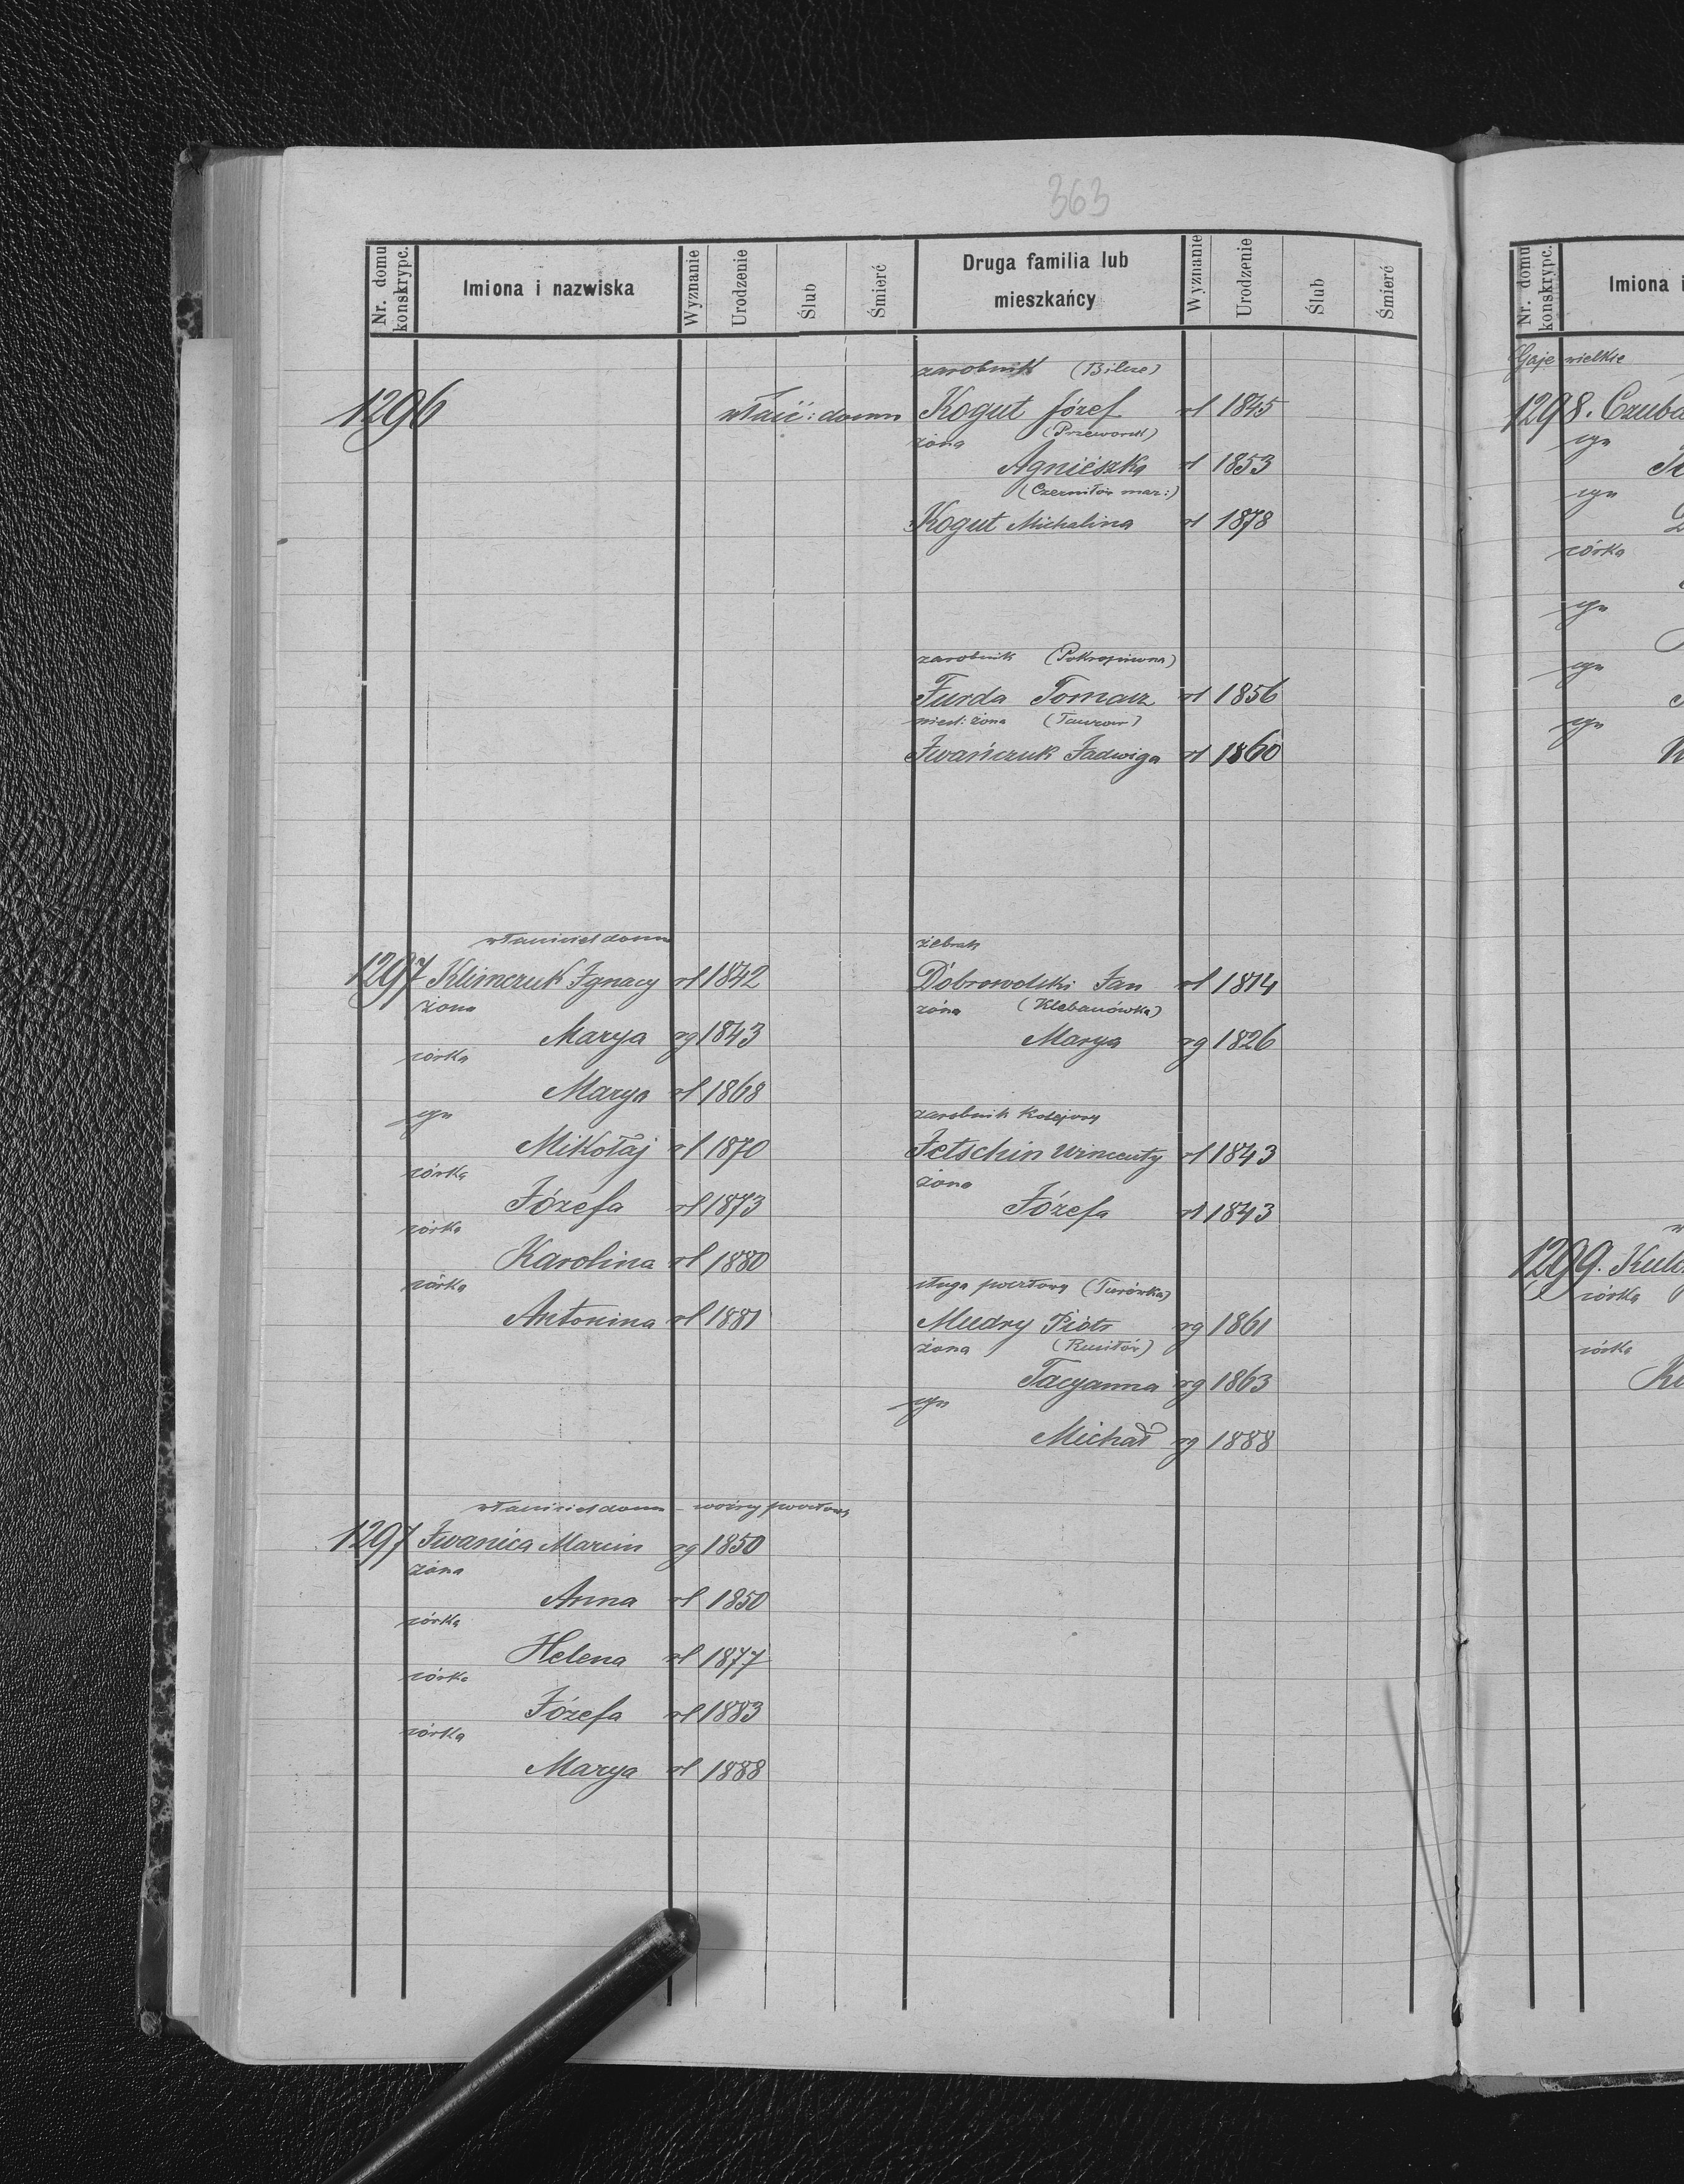 363
Nr. domu konskrypc.
Imiona i nazwiska
Wyznanie
Urodzenie
Ślub
Śmierć
Druga familia lub mieszkańcy
Wyznanie
Urodzenie
Ślub
Śmierć
zarobnik (Bilcze)
1296 właść: domu Kogut Józef rl 1845
żona (Przeworsk)
Agnieszka rl 1853
(Czerniłów maz:)
Kogut Michalina rl 1878
zarobnik (Pokropiwna)
Furda Tomasz rl 1856
nieśl: żona (Taurow)
Iwańczuk Jadwiga rl 1860
właściciel domu
1297 Klimczuk Ignacy rl 1842
żona
Marya rg 1843
córka
Marya rl 1868
syn
Mikołaj rl 1870
córka
Józefa rl 1873
córka
Karolina rl 1880
córka
Antonina rl 1881
żebrak
Dobrowolski Jan rl 1814
żona (Klebanówka)
Marya rg 1826
zarobnik kolejowy
Jetschin Wincenty rl 1843
żona
Józefa rl 1843
sługa pocztowy (Turówka)
Mudry Piotr rg 1861
żona (Rusiłów)
Tacyanna rg 1863
syn
Michał rg 1888
właściciel domu - woźny pocztowy
1297 Iwanica Marcin rg 1850
żona
Anna rl 1850
córka
Helena rl 1877
córka
Józefa rl 1883
córka
Marya rl 1888
Nr. domu konskrypc.
Imiona i
Gaje wielkie
1298. Czuba
syn
syn
córka
syn
syn
syn
1299. Kulc
córka
córka